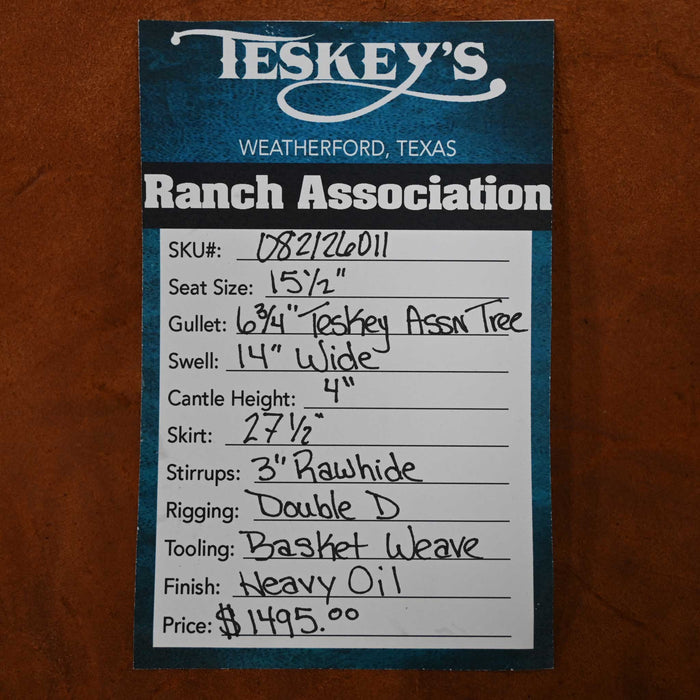 TESKEY'S
WEATHERFORD, TEXAS
Ranch Association
SKU#: 082126011
Seat Size: 15½"
Gullet: 6¾" Teskey Assn Tree
Swell: 14" Wide
Cantle Height: 4"
Skirt: 27½"
Stirrups: 3" Rawhide
Rigging: Double D
Tooling: Basket Weave
Finish: Heavy Oil
Price: $1495.00